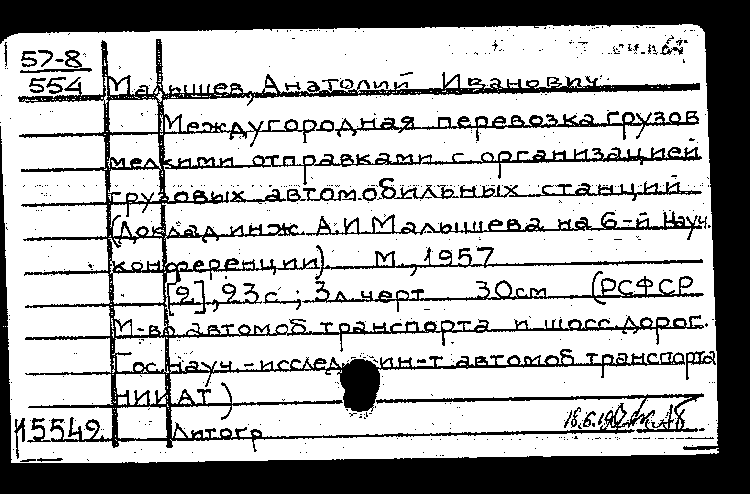 57-8
554 Малышев, Анатолий Иванович
Междугородная перевозка грузов
мелкими отправками с организацией
грузовых автомобильных станций
(Доклад инж. А.И Малышева на 6-й Науч.
конференции) М., 1957
[2], 23 с ; 3 л. черт 30см (РСФСР
М-во автомоб. транспорта и шосс. дорог.
Гос. науч.-исслед. ин-т автомоб транспорта
НИИАТ)
15549. Литогр